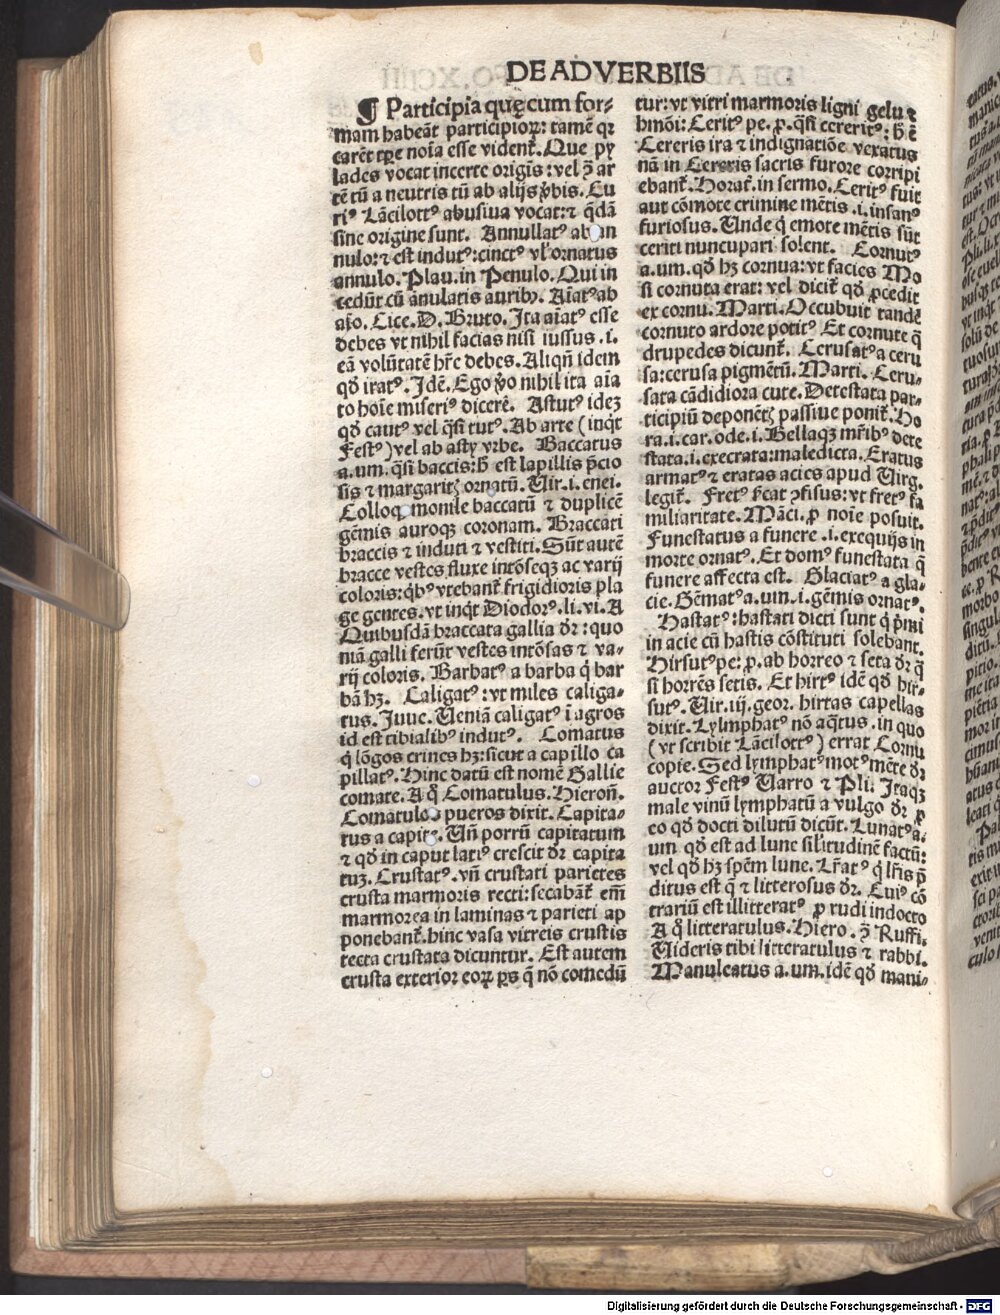 DE ADVERBIIS
¶ Participia quę cum for⸗
mam habeāt participioꝝ: tamē qꝛ
carēt tꝑe noīa esse vident̄. Que py
lades vocat incerte origīs: vel ꝙ ar
tē tū a neutris tū ab alijs ꝟbis. Cu
riꝰ Lācilottꝰ abusiua vocat: ⁊ q̄dā
sine origine sunt. Annullatꝰ ab an
nulo: ⁊ est indutꝰ: cinctꝰ vl' ornatus
annulo. Plau. in Penulo. Qui in
cedūt cū anulatis auribꝰ. Aīatꝰ ab
aīo. Cice. D. Bruto. Ita aīatꝰ esse
debes vt nihil facias nisi iussus .i.
eā volūtatē hr̄e debes. Aliqn̄ idem
qd̄ iratꝰ. Idē. Ego ꝟo nihil ita aīa
to hoīe miseriꝰ dicerē. Astutꝰ ideꝫ
qd̄ cautꝰ vel q̄si tutꝰ. Ab arte (inqt
Festꝰ) vel ab asty vrbe. Baccatus
a.um. q̄si baccis: h̄ est lapillis p̄cio
sis ⁊ margaritꝭ ornatū. Uir.i.enei.
Colloqꝫ monile baccatū ⁊ duplicē
gēmis auroqꝫ coronam. Braccati
braccis ⁊ induti ⁊ vestiti. Sūt autē
bracce vestes fluxe intōseqꝫ ac varij
coloris: qbꝰ vtebant̄ frigidioris pla
ge gentes. vt inqt Diodorꝰ. li. vi. A
Quibusdā braccata gallia dr̄: quo
niā galli ferūt vestes intōsas ⁊ va⸗
rij coloris. Barbatꝰ a barba q̄ bar
bā hꝫ. Caligatꝰ: vt miles caliga⸗
tus. Juue. Ueniā caligatꝰ ī agros
id est tibialibꝰ indutꝰ. Comatus
q̄ lōgos crines hꝫ: sicut a capillo ca
pillatꝰ. Hinc datū est nomē Gallie
comate. A q̄ Comatulus. Hieron̄.
Comatulos pueros dixit. Capita⸗
tus a capite. Un̄ porrū capitatum
⁊ qd̄ in caput latiꝰ crescit dr̄ capita
tuꝫ. Crustatꝰ. vn̄ crustati parietes
crusta marmoris tecti: secabāt̄ em̄
marmorea in laminas ⁊ parieti ap
ponebant̄. hinc vasa vitreis crustis
tecta crustata dicuntur. Est autem
crusta exterior eoꝝ ꝑs q̄ nō comedū
tur: vt vitri marmoris ligni gelu ⁊
hmōi: Ceritꝰ pe. ꝓ. q̄si cereritꝰ: h̄ ē
Cereris ira ⁊ indignatiōe vexatus
nā in Cereris sacris furore corripi
ebant̄. Horat̄. in sermo. Ceritꝰ fuit
aut cōmote crimine mētis .i. insanꝰ
furiosus. Unde q̄ emote mētis sūt
ceriti nuncupari solent. Cornutꝰ
a.um. qd̄ hꝫ cornua: vt facies Mo
si cornuta erat: vel dicit̄ qd̄ ꝓcedit
ex cornu. Marti. Occubuit tandē
cornuto ardore potitꝰ Et cornute q̄
drupedes dicunt̄. Cerusatꝰ a ceru
sa: cerusa pigmētū. Marti. Ceru⸗
sata cādidiora cute. Detestata par⸗
ticipiū deponētꝭ passiue ponit̄. Ho
ra.i.car.ode.i. Bellaqꝫ mr̄ibꝰ dete
stata .i. execrata: maledicta. Eratus
armatꝰ ⁊ eratas acies apud Uirg.
legit̄. Fretꝰ ṗcat ꝯfisus: vt fretꝰ fa
miliaritate. Māci. ꝓ noīe posuit.
Funestatus a funere .i. exequijs in
morte ornatꝰ. Et domꝰ funestata q̄
funere affecta est. Glaciatꝰ a gla⸗
cie. Gēmatꝰ a.um.i. gēmis ornatꝰ.
Hastatꝰ: hastati dicti sunt q̄ pͥmi
in acie cū hastis cōstituti solebant.
Hirsutꝰ pe: ꝓ. ab horreo ⁊ seta dr̄ q̄
si horrēs setis. Et hirtꝰ idē qd̄ hir⸗
sutꝰ. Uir.iij.geor. hirtas capellas
dixit. Lymphatꝰ nō aq̄tus. in quo
(vt scribit Lācilottꝰ) errat Cornu
copie. Sed lymphatꝰ motꝰ mēte dr̄
auctor Festꝰ Uarro ⁊ Pli. Itaqꝫ
male vinū lymphatū a vulgo dr̄ ꝓ
eo qd̄ docti dilutū dicūt. Lunatꝰ a.
um qd̄ est ad lune sil'itudinē factū:
vel qd̄ hꝫ spēm lune. Lr̄atꝰ q̄ lr̄is p̄
ditus est q̄ ⁊ litterosus dr̄. Cuiꝰ cō
trariū est illitteratꝰ ꝓ rudi indocto
A q̄ litteratulus. Hiero. ꝙ Ruffi.
Uideris tibi litteratulus ⁊ rabbi.
Manuleatus a.um. idē qd̄ mani⸗
Digitalisierung gefördert durch die Deutsche Forschungsgemeinschaft - DFG